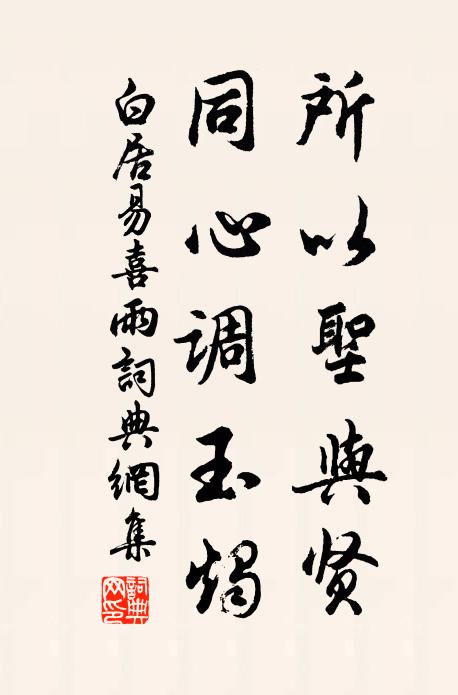 所以聖與贤
同心调玉燭
白居易喜雨詞典網集
詞典网印